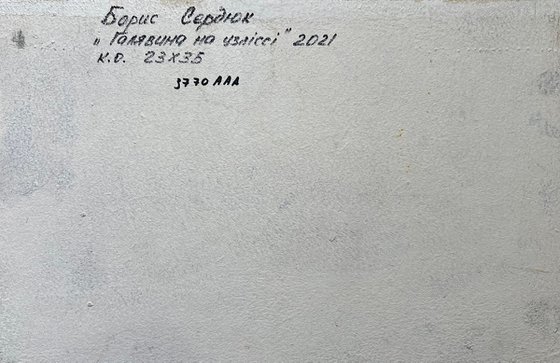 Борис Сердюк
„Галявина на узліссі" 2021
К.О. 23х35
3770 ААА